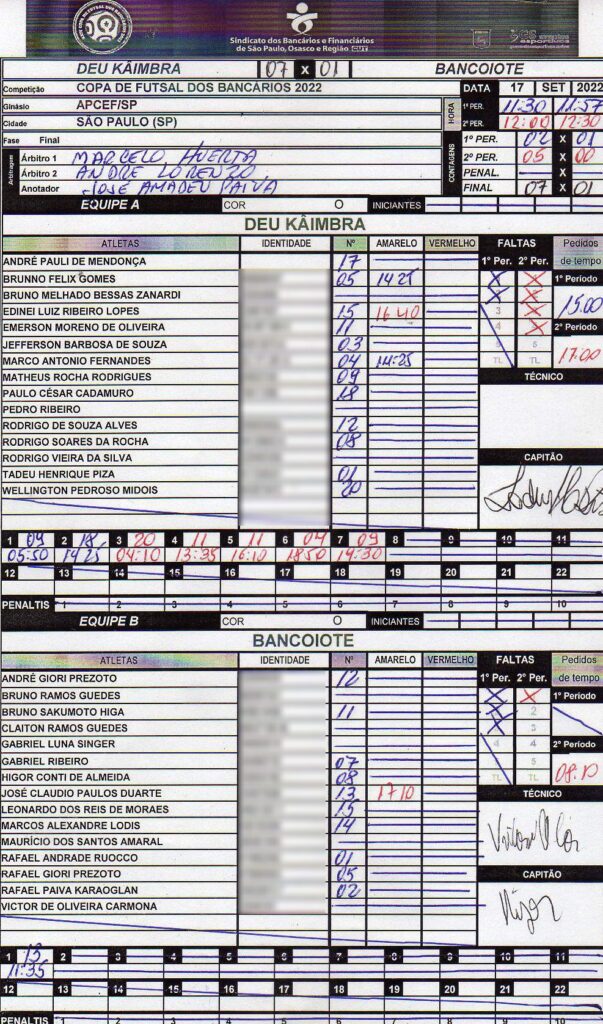 Sindicato dos Bancários e Financiários
de São Paulo, Osasco e Região CUT
DEU KÂIMBRA 07 X 01 BANCOIOTE
Competição COPA DE FUTSAL DOS BANCÁRIOS 2022 DATA 17 SET 2022
Ginásio APCEF/SP HORA 1º PER. 11:30 11:57
Cidade SÃO PAULO (SP) 2º PER. 12:00 12:30
Fase Final CONTAGENS 1º PER. 02 X 01
Arbitragem Árbitro 1 MARCELO HUERTA 2º PER. 05 X 00
Árbitro 2 ANDRE LORENZO PENAL. X
Anotador JOSÉ AMADEU PAIVA FINAL 07 X 01
EQUIPE A COR O INICIANTES
DEU KÂIMBRA
ATLETAS IDENTIDADE Nº AMARELO VERMELHO FALTAS Pedidos
1º Per. 2º Per. de tempo
ANDRÉ PAULI DE MENDONÇA 17
BRUNNO FELIX GOMES 05 14 25 1º Período
BRUNO MELHADO BESSAS ZANARDI
EDINEI LUIZ RIBEIRO LOPES 15 16 40 3 15.00
EMERSON MORENO DE OLIVEIRA 11 4 2º Período
JEFFERSON BARBOSA DE SOUZA 03 5 5
MARCO ANTONIO FERNANDES 04 14:25 TL TL 17.00
MATHEUS ROCHA RODRIGUES 09 TÉCNICO
PAULO CÉSAR CADAMURO 18
PEDRO RIBEIRO
RODRIGO DE SOUZA ALVES 12
RODRIGO SOARES DA ROCHA 08
RODRIGO VIEIRA DA SILVA CAPITÃO
TADEU HENRIQUE PIZA 01
WELLINGTON PEDROSO MIDOIS 20
1 09 2 18 3 20 4 11 5 11 6 04 7 09 8 9 10 11
05:50 14 25 04:10 13:35 16:10 18:50 19:30
12 13 14 15 16 17 18 19 20 21 22
PENALTIS 1 2 3 4 5 6 7 8 9 10
EQUIPE B COR O INICIANTES
BANCOIOTE
ATLETAS IDENTIDADE Nº AMARELO VERMELHO FALTAS Pedidos
1º Per. 2º Per. de tempo
ANDRÉ GIORI PREZOTO 12
BRUNO RAMOS GUEDES 1º Período
BRUNO SAKUMOTO HIGA 11 2
CLAITON RAMOS GUEDES 3
GABRIEL LUNA SINGER 4 4 2º Período
GABRIEL RIBEIRO 07 5
HIGOR CONTI DE ALMEIDA 08 TL TL 08:10
JOSÉ CLAUDIO PAULOS DUARTE 13 17 10 TÉCNICO
LEONARDO DOS REIS DE MORAES 15
MARCOS ALEXANDRE LODIS 14
MAURÍCIO DOS SANTOS AMARAL
RAFAEL ANDRADE RUOCCO 01
RAFAEL GIORI PREZOTO 05 CAPITÃO
RAFAEL PAIVA KARAOGLAN 02
VICTOR DE OLIVEIRA CARMONA
1 13 2 3 4 5 6 7 8 9 10 11
11:35
12 13 14 15 16 17 18 19 20 21 22
PENALTIS 1 2 3 4 5 6 7 8 9 10